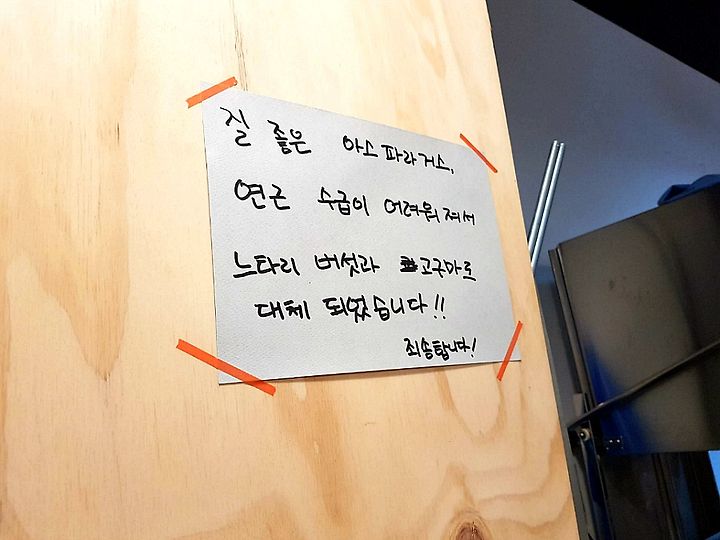 질 좋은 아스파라거스,
연근 수급이 어려워져서
느타리 버섯과 고구마로
대체 되었습니다!!
죄송합니다!